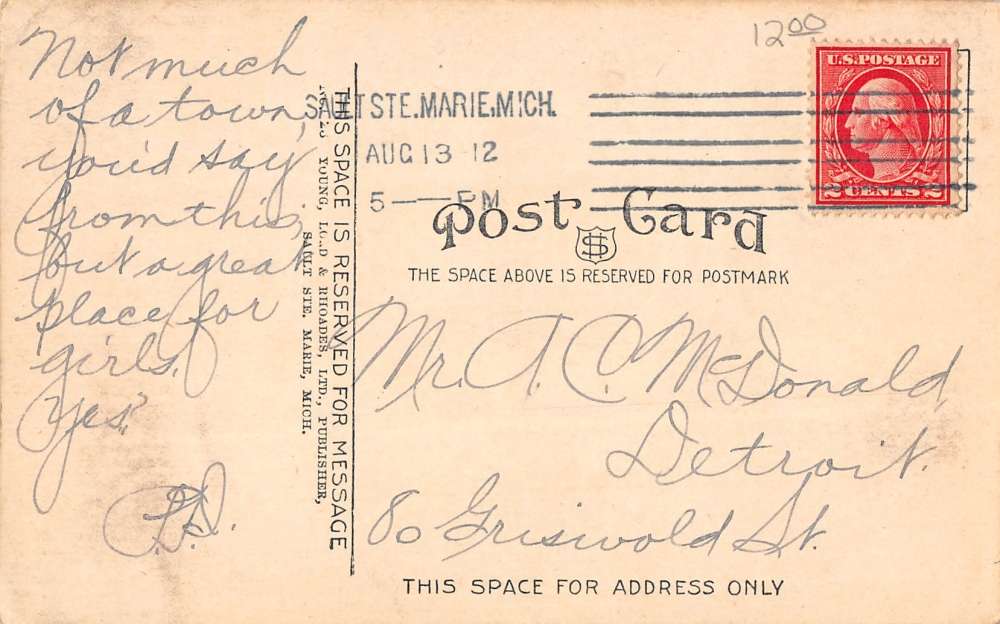 Not much
of a town,
you'd say
from this,
but a great
place for
girls.
Yes?
12 00
U.S. POSTAGE
2 CENTS 2
SAULT STE. MARIE, MICH.
AUG 13 12
5 — PM
Post Card
THE SPACE ABOVE IS RESERVED FOR POSTMARK
THIS SPACE IS RESERVED FOR MESSAGE
YOUNG, LORD & RHOADES, LTD., PUBLISHER,
SAULT STE. MARIE, MICH.
Mr. A. C. McDonald,
Detroit.
80 Griswold St.
THIS SPACE FOR ADDRESS ONLY